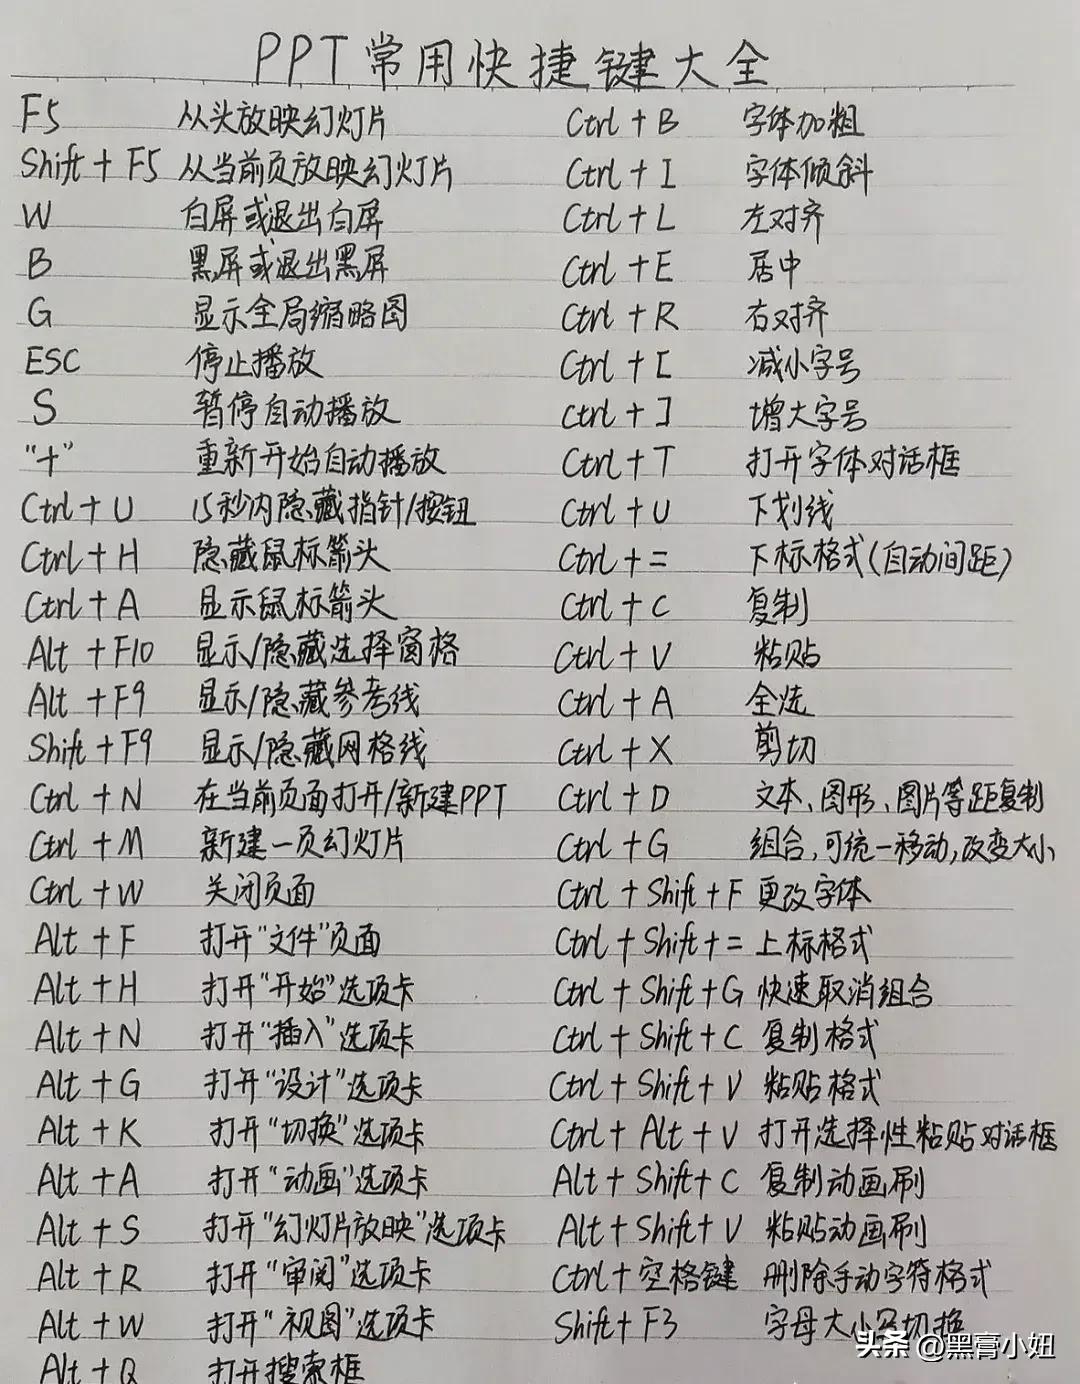 PPT常用快捷键大全
F5 从头放映幻灯片 Ctrl + B 字体加粗
Shift + F5 从当前页放映幻灯片 Ctrl + I 字体倾斜
W 白屏或退出白屏 Ctrl + L 左对齐
B 黑屏或退出黑屏 Ctrl + E 居中
G 显示全局缩略图 Ctrl + R 右对齐
ESC 停止播放 Ctrl + [ 减小字号
S 暂停自动播放 Ctrl + ] 增大字号
"+" 重新开始自动播放 Ctrl + T 打开字体对话框
Ctrl + U 15秒内隐藏指针/按钮 Ctrl + U 下划线
Ctrl + H 隐藏鼠标箭头 Ctrl + = 下标格式(自动间距)
Ctrl + A 显示鼠标箭头 Ctrl + C 复制
Alt + F10 显示/隐藏选择窗格 Ctrl + V 粘贴
Alt + F9 显示/隐藏参考线 Ctrl + A 全选
Shift + F9 显示/隐藏网格线 Ctrl + X 剪切
Ctrl + N 在当前页面打开/新建PPT Ctrl + D 文本、图形、图片等距复制
Ctrl + M 新建一页幻灯片 Ctrl + G 组合,可统一移动,改变大小
Ctrl + W 关闭页面 Ctrl + Shift + F 更改字体
Alt + F 打开"文件"页面 Ctrl + Shift + = 上标格式
Alt + H 打开"开始"选项卡 Ctrl + Shift + G 快速取消组合
Alt + N 打开"插入"选项卡 Ctrl + Shift + C 复制格式
Alt + G 打开"设计"选项卡 Ctrl + Shift + V 粘贴格式
Alt + K 打开"切换"选项卡 Ctrl + Alt + V 打开选择性粘贴对话框
Alt + A 打开"动画"选项卡 Alt + Shift + C 复制动画刷
Alt + S 打开"幻灯片放映"选项卡 Alt + Shift + V 粘贴动画刷
Alt + R 打开"审阅"选项卡 Ctrl + 空格键 删除手动字符格式
Alt + W 打开"视图"选项卡 Shift + F3 字母大小写切换
头条 @黑膏小妞
Alt + Q 打开搜索框